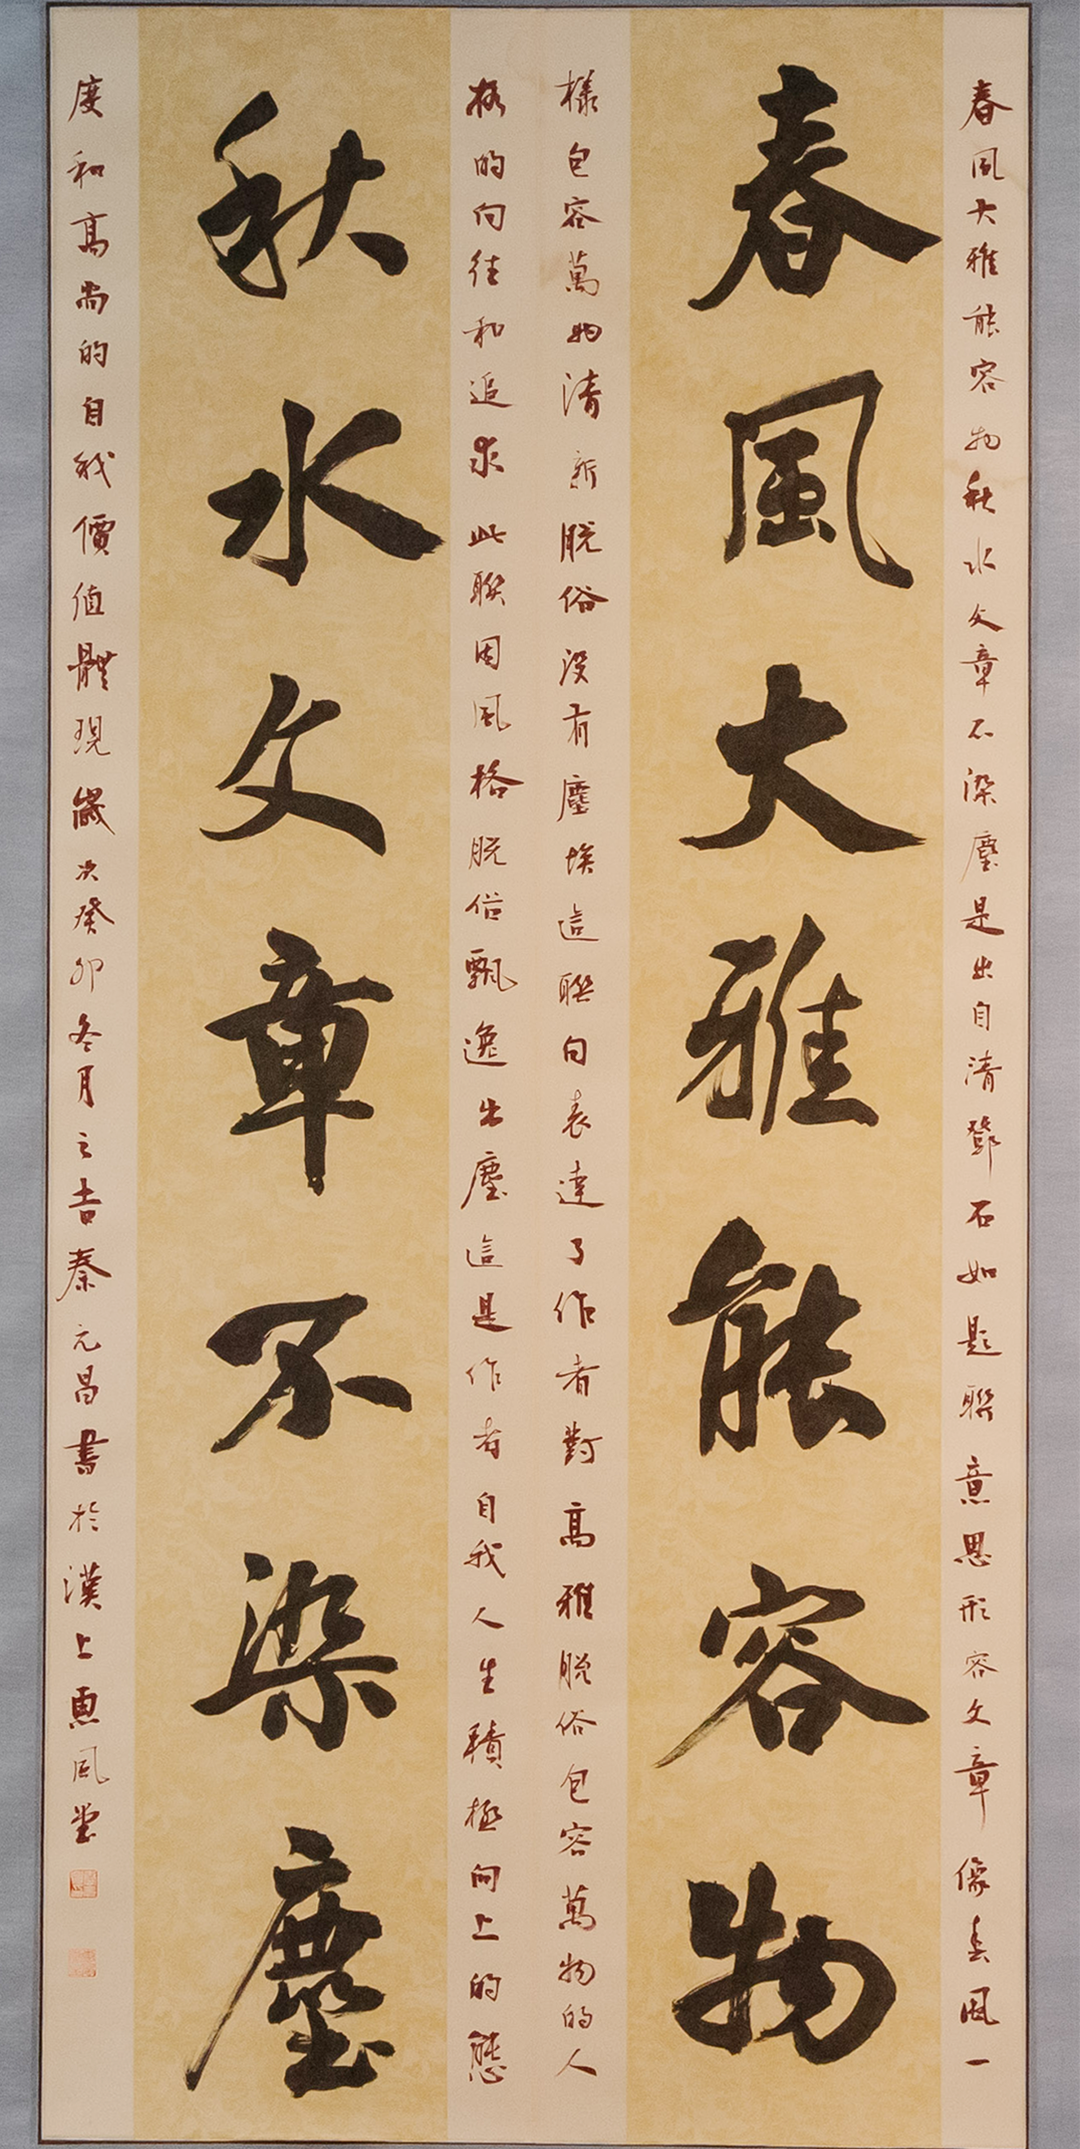 春風大雅能容物秋水文章不染塵是出自清鄧石如題聯意思形容文章像春風一
春風大雅能容物
樣包容萬物清新脱俗没有塵埃這聯句表達了作者對高雅脱俗包容萬物的人
格的向往和追求此聯因風格脱俗飄逸出塵這是作者自我人生積極向上的態
秋水文章不染塵
度和高尚的自我價值體現歲次癸卯冬月之吉秦元昌書於漢上惠風堂